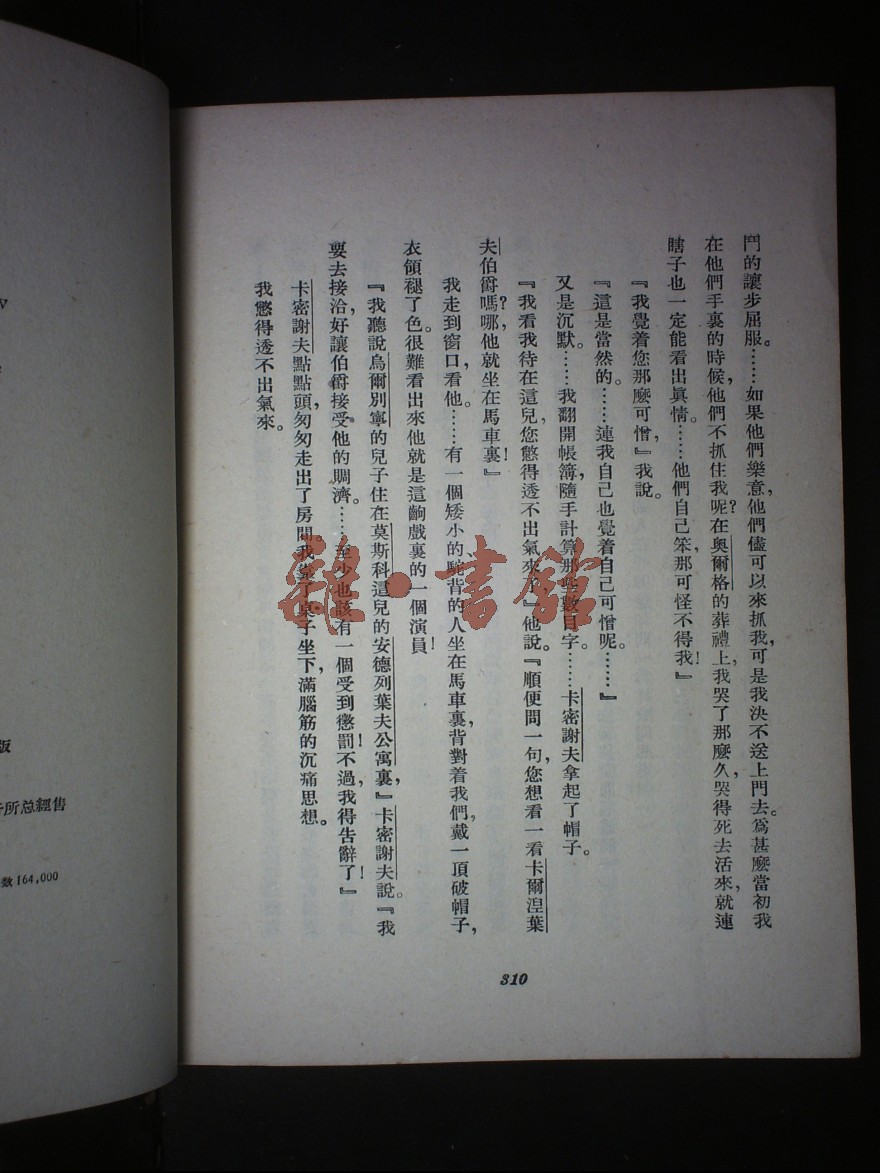 鬥的讓步屈服。……如果他們樂意，他們儘可以來抓我，可是我決不送上門去。爲甚麽當初我
在他們手裏的時候，他們不抓住我呢？在奥爾格的葬禮上，我哭了那麽久，哭得死去活來，就連
瞎子也一定能看出眞情。……他們自己笨，那可怪不得我！』
『我覺着您那麽可憎，』我說。
『這是當然的。……連我自己也覺着自己可憎呢。……』
又是沉默。……我翻開帳簿，隨手計算那些數目字。……卡密謝夫拿起了帽子。
『我看我待在這兒，您憋得透不出氣來？』他說。『順便問一句，您想看一看卡爾湼葉
夫伯爵嗎？哪，他就坐在馬車裏！』
我走到窗口看他。……有一個矮小的駝背的人坐在馬車裏，背對着我們，戴一頂破帽子，
衣領褪了色。很難看出來他就是這齣戲裏的一個演員！
『我聽說烏爾別寧的兒子住在莫斯科這兒的安德列葉夫公寓裏，』卡密謝夫說。『我
要去接洽，好讓伯爵接受他的賙濟。……至少也該有一個受到懲罰！不過，我得告辭了！』
卡密謝夫點點頭，匆匆走出了房間。我靠了桌子坐下，滿腦筋的沉痛思想。
我憋得透不出氣來。
310
雜·書館
V
版
所总經售
数164,000